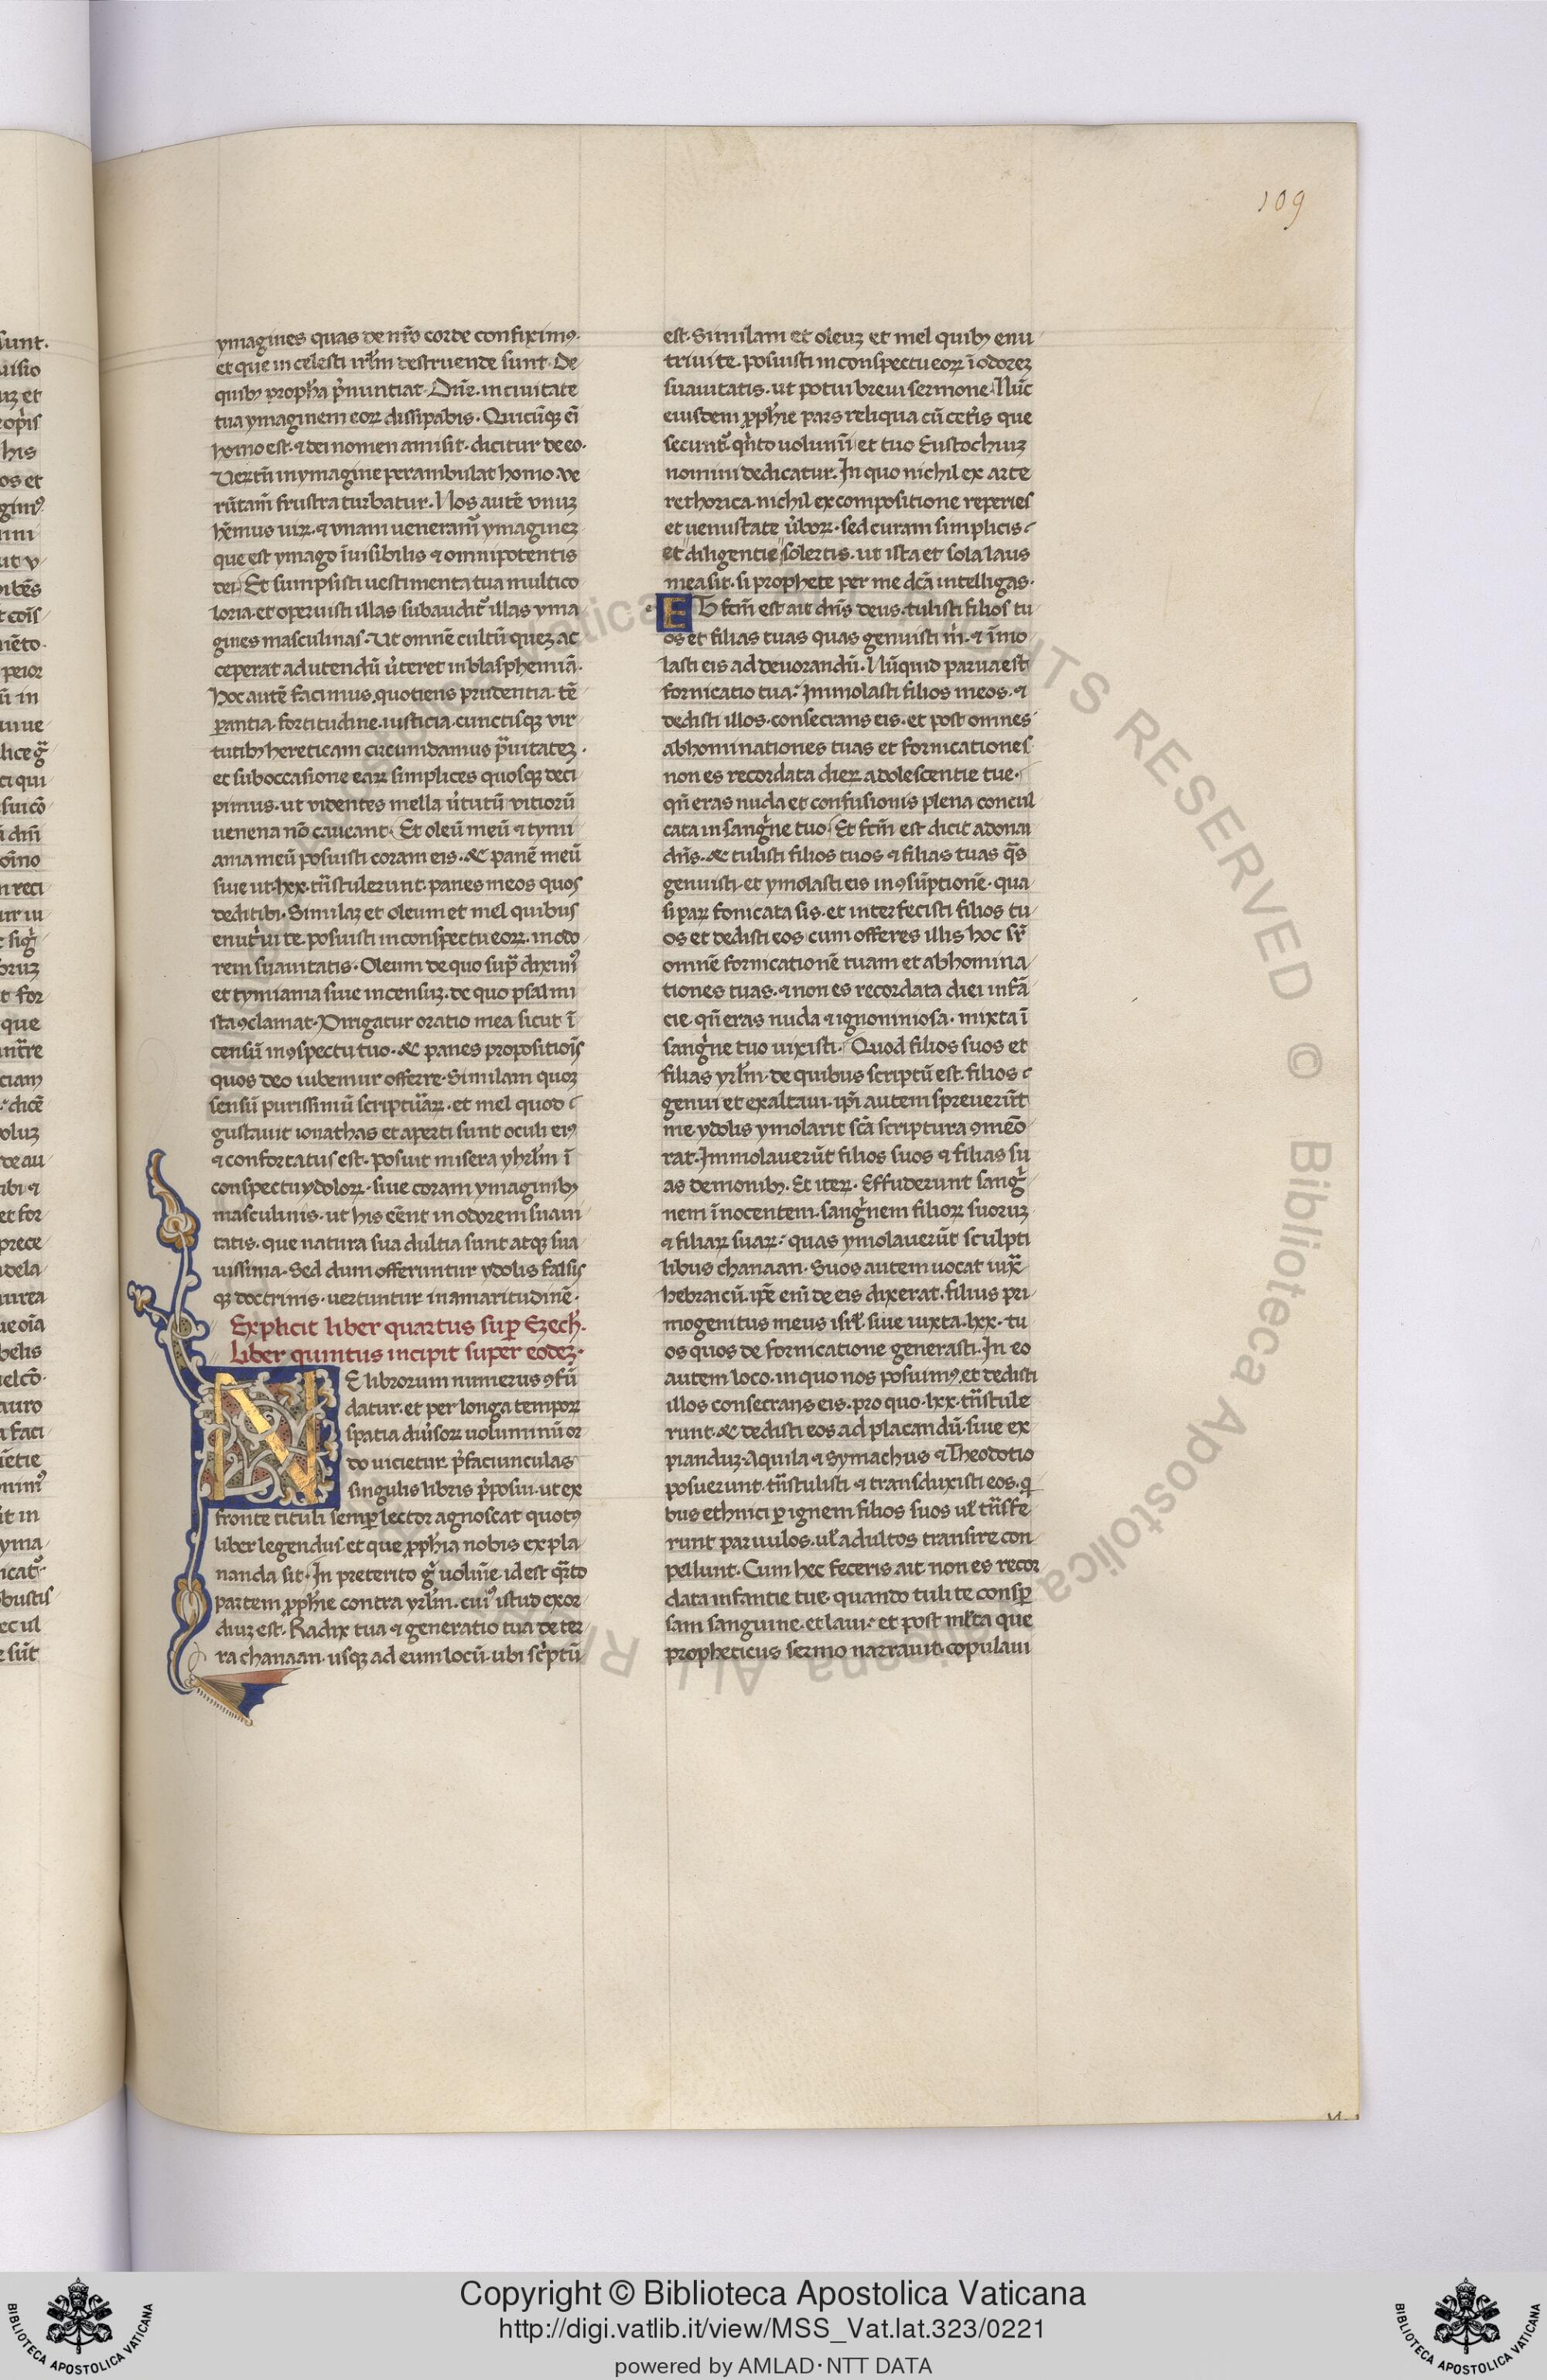 109
ymagines quas de nr̄o corde confiximꝰ·
et que in celesti irl̄m destruende sunt· De
quibꝫ propħa p̄nuntiat· Dn̄e· in ciuitate
tua ymaginem eoꝝ dissipabis· Quicūqꝫ ei
homo est· ⁊ dei nomen amisit· dicitur de eo·
Uertn̄ in ymagine perambulat homo· ve
rūtam̄ frustra turbatur· Nos autē vnuꝫ
hēmus uiꝝ· ⁊ vnam ueneram᷑ ymagineꝫ
que est ymago īuisibilis ⁊ omnipotentis
dei· Et sumpsisti uestimenta tua multico
loria· et operuisti illas· subaudit᷑ illas yma
gines masculinas· Ut omnē cultū queꝫ ac
ceperat ad utendū ūteret in blasphemiā·
Hoc autē facimus quotiens prudentia· tē
ꝑantia· fortitudine· iusticia· cunctisqꝫ vir
tutibꝫ hereticam circumdamus p̄uitateꝫ·
et sub occasione eaꝝ simplices quosqꝫ deci
pimus· ut videntes mella ūtutū vitiorū
uenena nō caueant· Et oleū meū ⁊ tymi
ama meū posuisti coram eis· ⁊c̄ panē meū
siue ut·lxx·tn̄stulerunt· panes meos quos
dedi tibi· Similaꝫ et oleum et mel quibus
enut̄ui te· posuisti in conspectu eoꝝ· in odo
rem suauitatis· Oleum de quo sup̄ diximꝰ
et tymiama siue incensuꝫ· de quo psalmi
sta ꝯclamat· Dirigatur oratio mea sicut ī
censū in ꝯspectu tuo· ⁊c̄ panes propositiōis
quos deo iubemur offerre· Similam quoqꝫ
sensū purissimū scriptuāꝝ· et mel quod
gustauit ionathas et aperti sunt oculi eiꝰ
⁊ confortatus est· posuit misera yhrl̄m ī
conspectu ydoloꝝ· siue coram ymaginibꝫ
masculinis· ut his eēnt in odorem suaui
tatis· que natura sua dultia sunt atqꝫ sua
uissima· Sed dum offeruntur ydolis falsis
qꝫ doctrinis· uertuntur in amaritudinē·
Explicit liber quartus sup̄ Ezech̄·
Liber quintus incipit super eodeꝫ·
NE librorum numerus ꝯfū
datur· et per longa tempoꝝ
spatia diuisoꝝ uoluminū or
do uicietur· p̄faciunculas
singulis libris p̄posui· ut ex
fronte tituli semꝑ lector agnoscat quotꝰ
liber legendus· et que ꝓpħia nobis expla
nanda sit· In preterito ḡ uolum̄e· id est q̄rto
partem ꝓpħie contra yrl̄m· cuiꝰ istud exor
diuꝫ est· Radix tua ⁊ generatio tua de ter
ra chanaan· usqꝫ ad eum locū· ubi sc̄ptū
est· Similam et oleuꝫ et mel quibꝫ enu
triui te· posuisti in conspectu eoꝝ ī odoreꝫ
suauitatis· ut potui breui sermone· Nūc
eiusdem ꝓpħie pars reliqua cū ceteris que
secunt᷑· q̄nto uolumī et tuo Eustochiuꝫ
nomini dedicatur· In quo nichil ex arte
rethorica· nichil ex compositione reperies
et uenustate ūboꝝ· sed curam simplicis
et diligentie solertis· ut ista et sola laus
mea sit· si prophete per me dc̄ā intelligas·
ET fcm̄ est ait dn̄s deus· tulisti filios tu
os et filias tuas quas genuisti m̄· ⁊ īmo
lasti eis ad deuorandū· Nūquid parua est
fornicatio tua· Immolasti filios meos· ⁊
dedisti illos· consecrans eis· et post omnes
abhominationes tuas et fornicationes
non es recordata dieꝝ adolescentie tue·
qn̄ eras nuda et confusionis plena concul
cata in sanḡne tuo· Et fcm̄ est dicit adonai
dn̄s· ⁊c̄ tulisti filios tuos ⁊ filias tuas q̄s
genuisti· et ymolasti eis in ꝯsūptionē· qua
si paꝝ fonicata sis· et interfecisti filios tu
os et dedisti eos cum offeres illis hoc sr̄
omnē fornicationē tuam et abhomina
tiones tuas· ⁊ non es recordata diei infā
cie· qn̄ eras nuda ⁊ ignominiosa· mixta ī
sanḡne tuo uixisti· Quod filios suos et
filias yrl̄m· de quibus scriptū est· filios
genui et exaltaui· ip̄i autem spreuerūt
me· ydolis ymolarit sc̄a scriptura ꝯmēo
rat· Immolauerūt filios suos ⁊ filias su
as demonibꝫ· Et iteꝝ· Effuderunt sanḡ
nem īnocentem· sanḡnem filioꝝ suoruꝫ
⁊ filiaꝝ suaꝝ· quas ymolauerūt sculpti
libus chanaan· Suos autem uocat iuxͣ
hebraicū· ip̄e eni de eis dixerat· filius pri
mogenitus meus isrl̄· siue iuxta·lxx·tu
os quos de fornicatione generasti· In eo
autem loco· in quo nos posuimꝰ· et dedisti
illos consecrans eis· pro quo·lxx·tn̄stule
runt· ⁊c̄ dedisti eos ad placandū· siue ex
pianduꝫ· Aquila ⁊ Symachus ⁊ Theodotio
posuerunt· tn̄stulisti ⁊ transduxisti eos· q̄
bus ethnici ꝑ ignem filios suos ul̄ tn̄sfe
runt paruulos· ul̄ adultos transire con
pellunt· Cum hec feceris ait non es recor
data infantie tue· quando tuli te consꝑ
sam sanguine· et laui· et post ml̄ta que
propheticus sermo narrauit· copulaui
Copyright © Biblioteca Apostolica Vaticana
http://digi.vatlib.it/view/MSS_Vat.lat.323/0221
powered by AMLAD·NTT DATA
BIBLIOTECA APOSTOLICA VATICANA
BIBLIOTECA APOSTOLICA VATICANA